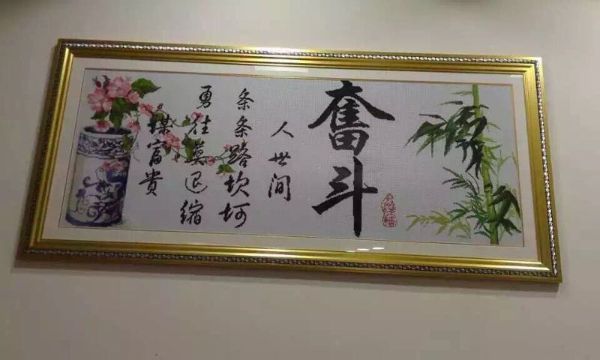 奮斗
人世间
条条路坎坷
勇往莫退缩
谋富貴